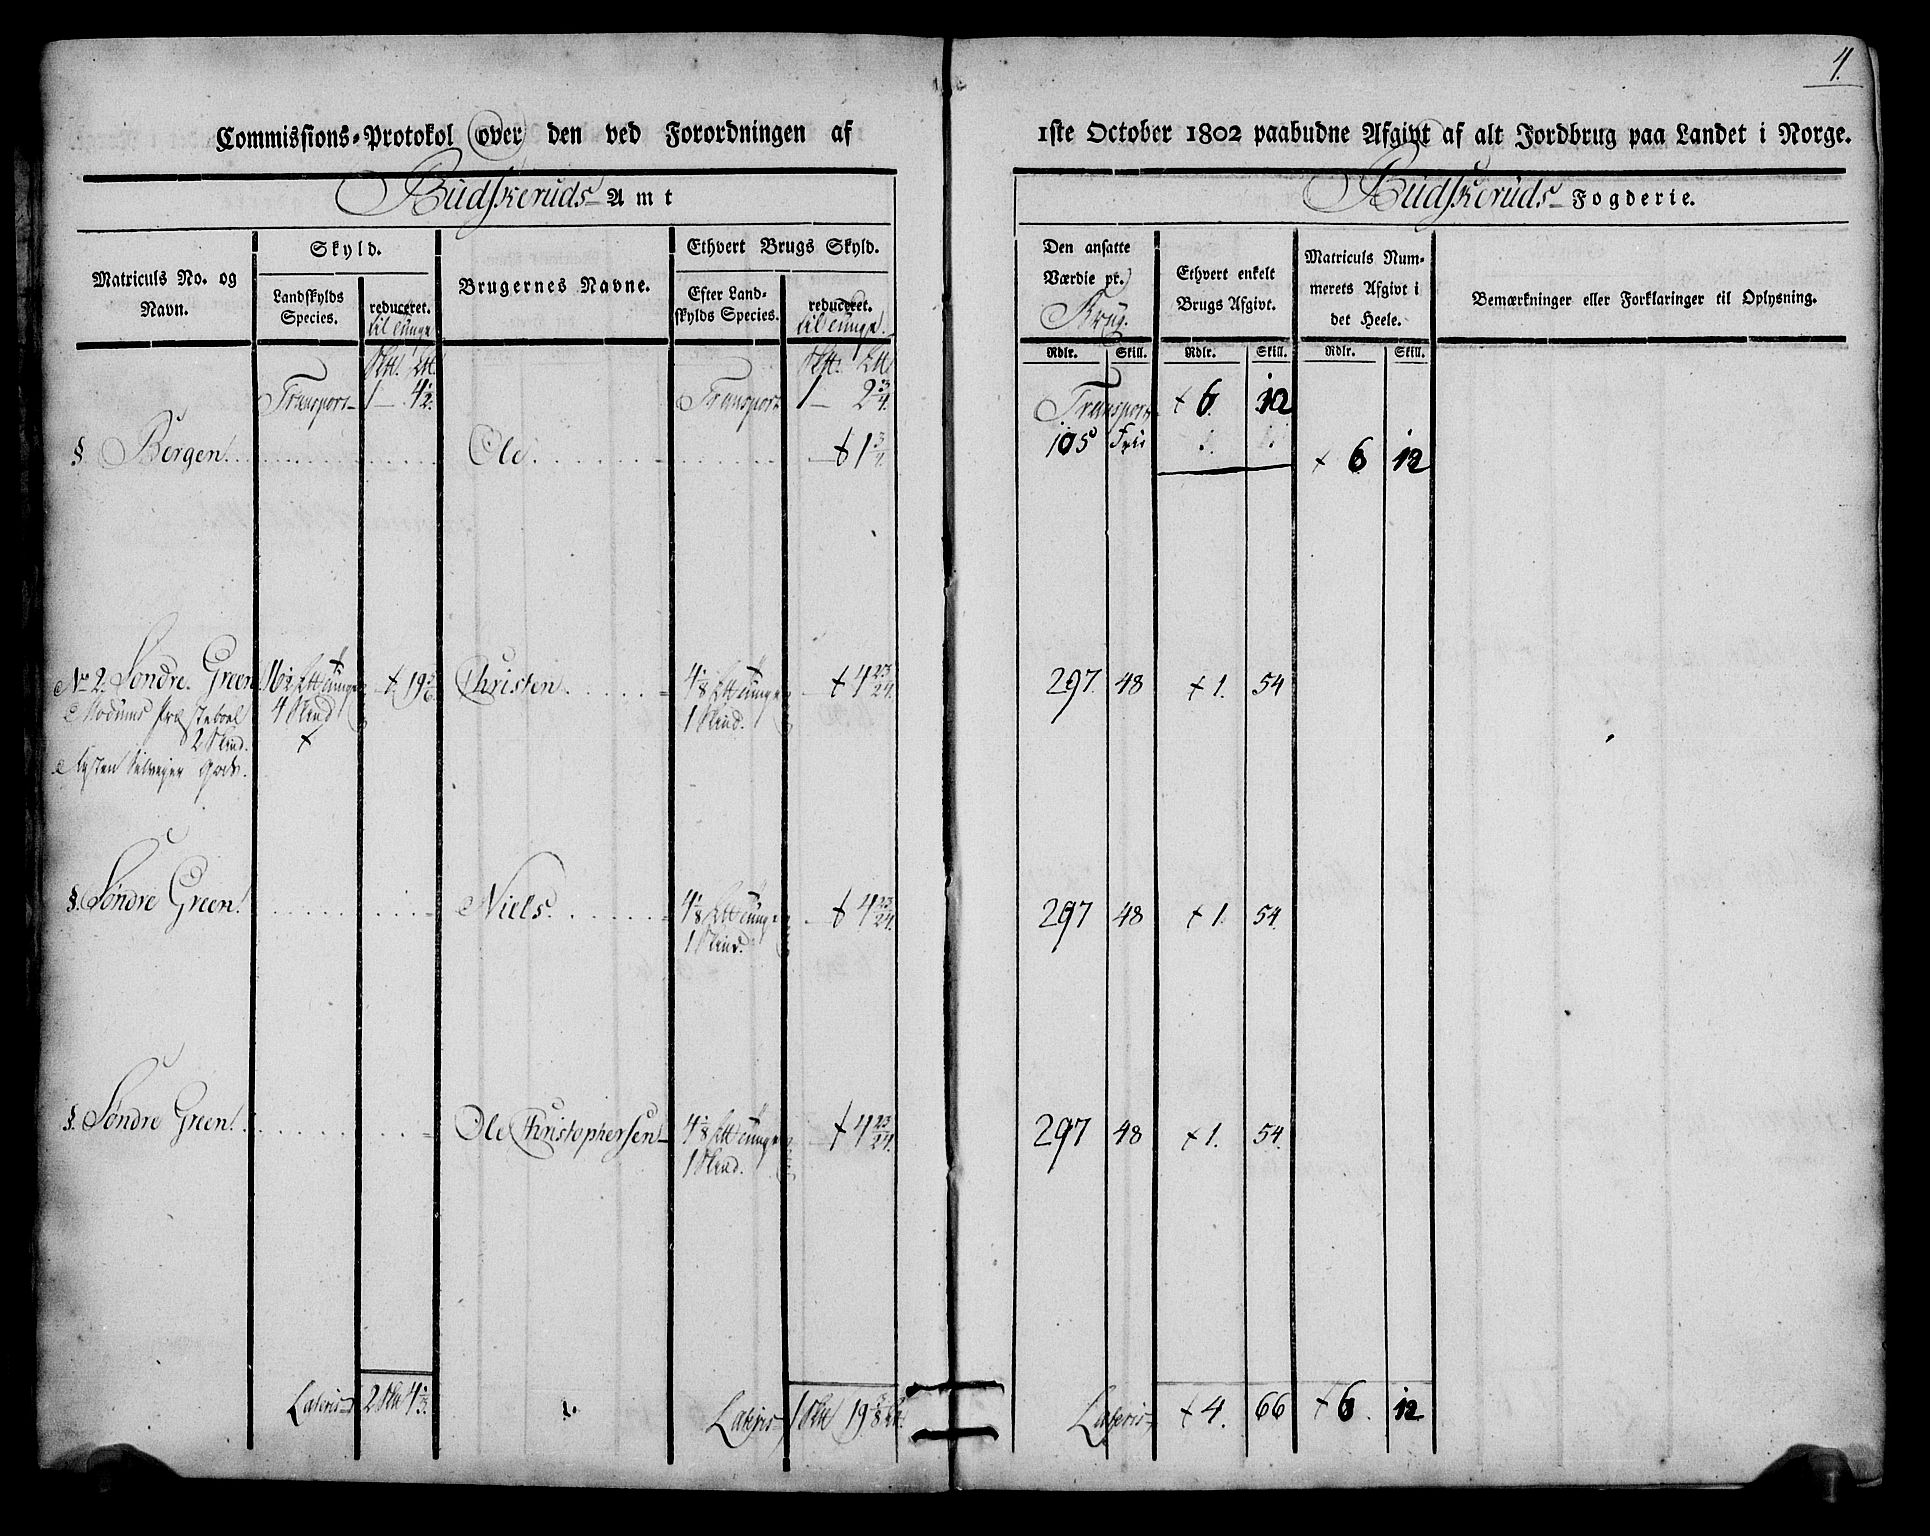 4.
Commissions-Protokol over den ved Forordningen af 1ste October 1802 paabudne Afgivt af alt Jordbrug paa Landet i Norge.
Budskeruds Amt
Budskeruds Fogderie.
Matriculs No. og Navn.
Skyld.
Landskylds Species.
reduceret.
til tunge
Brugernes Navne.
Ethvert Brugs Skyld.
Efter Landskylds Species.
reduceret.
til tunge.
Den ansatte Værdie pr. Brug.
Ethvert enkelt Brugs Afgivt.
Matriculs Nummerets Afgivt i det Heele.
Bemærkninger eller Forklaringer til Oplysning.
Rdlr. Skill. Rdlr. Skill. Rdlr. Skill.
Transport 1 – 4 1/2. Transport 1 – 2 3/4. Transport 6. 12
§. Bergen. Ole. 1 3/4 105 Frie 6 12
No 2. Søndre Green 16 1/2 tunge 19 5/6 Christen. 4 1/8 tunge 4 23/24. 297. 48 1. 54
Modums Præsteboel 4 Skind 1 Skind.
2 Skind.
§. Søndre Green. Niels. 4 1/8 tunge 4 23/24. 297 48 1. 54.
1 Skind.
§. Søndre Green. Ole Christophersen 4 1/8 tunge 4 23/24. 297 48 1. 54.
1 Skind.
Lateris 2 4 1/3. Lateris 1 19 3/8 Lateris 4. 66 6. 12